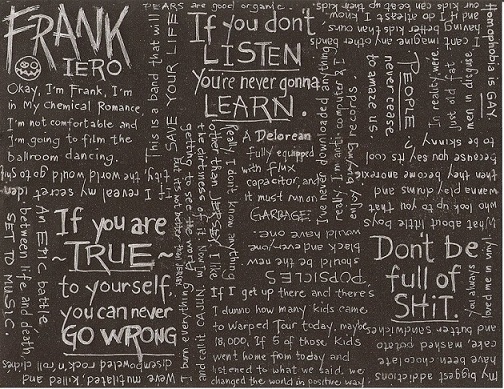 FRANK
IERO
Okay, I'm Frank, I'm
in My Chemical Romance,
I'm not comfortable and
I'm going to film the
ballroom dancing.
If I reveal my secret iden
tity, the world would go to shit
An EPIC battle,
between life, and death,
SET TO MUSIC.
If you are
~TRUE~
to yourself,
you can never
GO WRONG
Were mutilated and killed
disempowered rock'n'roll cliches
This is a band that will
SAVE YOUR LIFE
PEARS are good organic.
If you don't
LISTEN
You're never gonna
LEARN.
Really, I don't know anything
other than JERSEY. I like
the dirtiness of it. Now I'm
getting to see the world.
I burn everything
and call it CAJUN.
A Delorean
fully equipped
with flux
capacitor, and
it must run on
GARBAGE!
POPSICLES
should be the new
black and everyone
would have one.
If I get up there and there's
I dunno how many kids came
to Warped Tour today, maybe
18,000, If 5 of those kids
went home from today and
listened to what we said, we
changed the world in positive way
I've never downloaded anything
really. I'm anti-computer & I
enjoy buying records.
can't imagine other bands
having better kids than ours
and if I do atleast I know
our kids can beat them up.
Homophobia is GAY
PEOPLE
never cease
to amaze us.
In reality were
just old fat
men in disguise
What about little boys
who look up to you that
wanna play drums and
then they become anorexic
because you say its cool
to be skinny?
Don't be
full of
SHiT.
you always
loved me in vinyl
My biggest addictions
have been chocolate
cake, mashed potato
and butter sandwiches